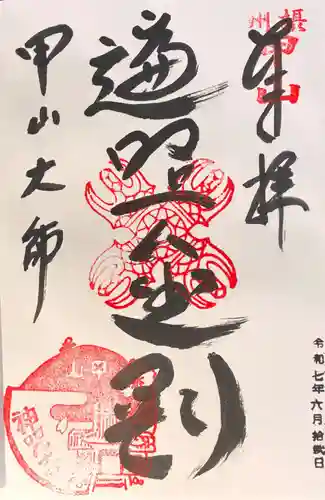 摂州
甲山
奉拝
令和七年六月拾弐日
遍照金剛
甲山大師